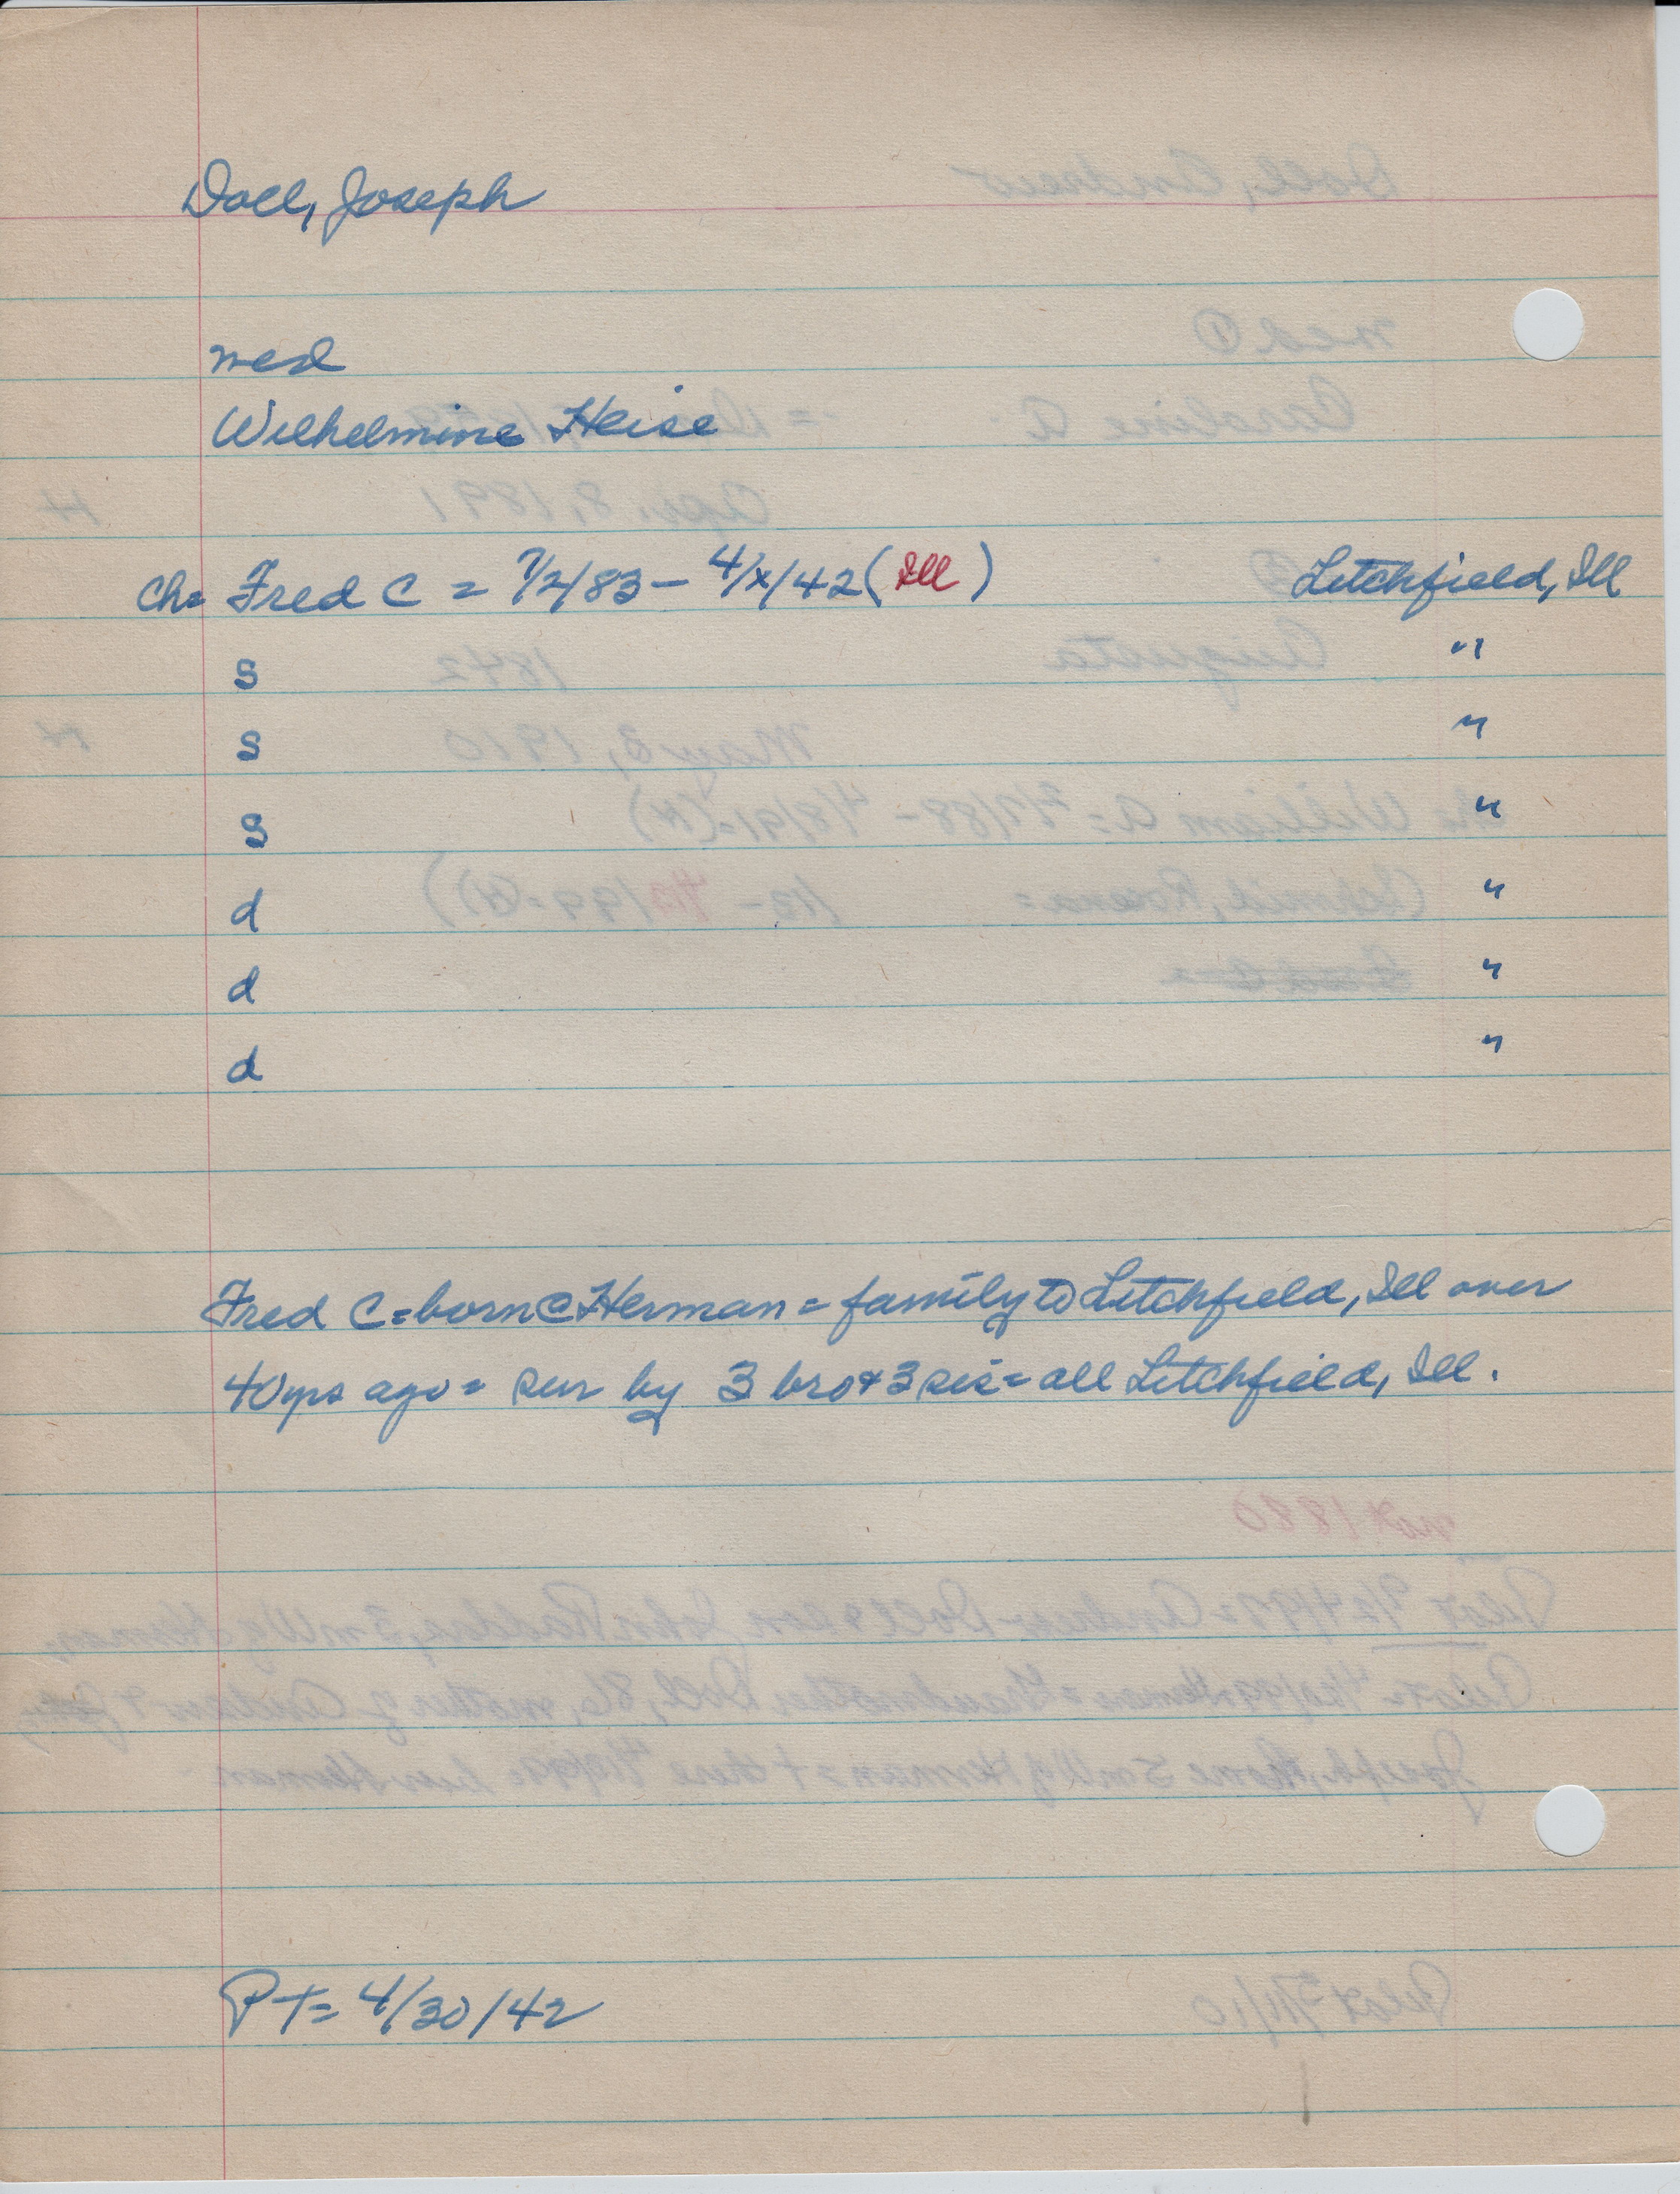 Doll, Joseph
med
Wilhelmine Heise
Ch= Fred C = 7/2/83 - 4/x/42 (Ill) Litchfield, Ill
s "
s "
s "
d "
d "
d "
Fred C = born @ Herman = family to Litchfield, Ill over
40 yrs ago = sur by 3 bro & 3 sis = all Litchfield, Ill.
PT= 4/30/42